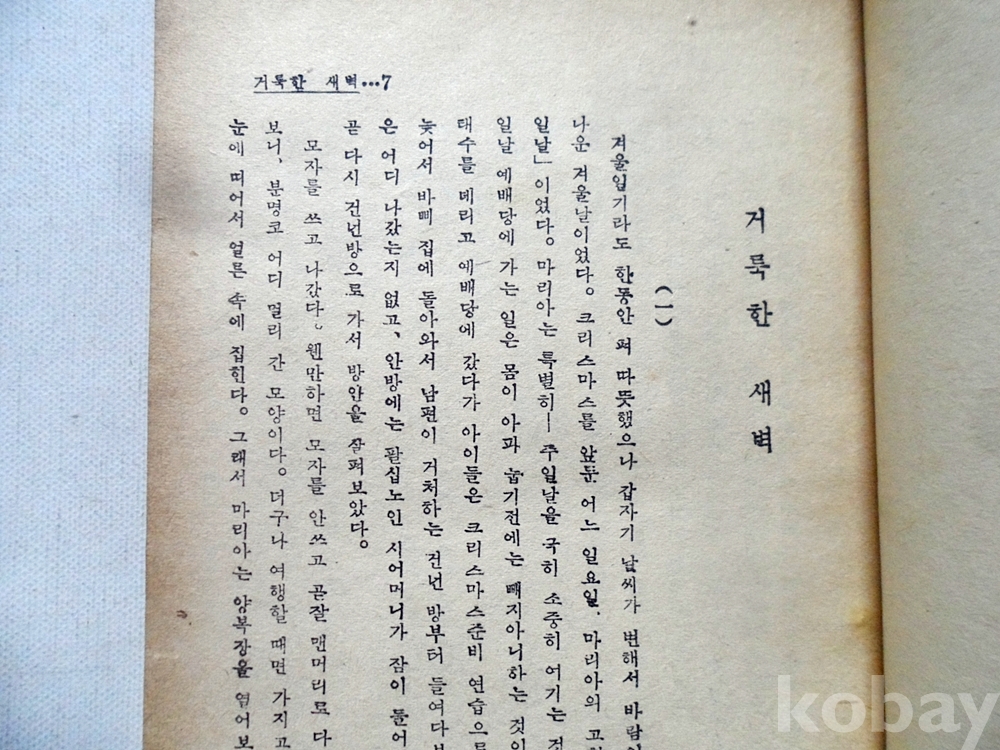 거룩한 새벽…7
거룩한 새벽
(一)
겨울일기라도 한동안 퍽 따뜻했으나 갑자기 날씨가 변해서 바람이
나운 겨울날이었다。크리스마스를 앞둔 어느 일요일、마리아의 고
일날」이었다。마리아는 특별히― 주일날을 극히 소중히 여기는 것
일날 예배당에 가는 일은 몸이 아파 눕기전에는 빼지아니하는 것이
태수를 데리고 예배당에 갔다가 아이들은 크리스마스준비 연습으로
늦어서 바삐 집에 돌아와서 남편이 거처하는 건넌 방부터 들여다보
은 어디 나갔는지 없고、안방에는 팔십노인 시어머니가 잠이 들어
곧 다시 건넌방으로 가서 방안을 살펴보았다。
모자를 쓰고 나갔다。웬만하면 모자를 안쓰고 곧잘 맨머리로 다
보니、분명코 어디 멀리 간 모양이다。더구나 여행할 때면 가지고
눈에 띠어서 얼른 속에 집힌다。그래서 마리아는 양복장을 열어보
kobay